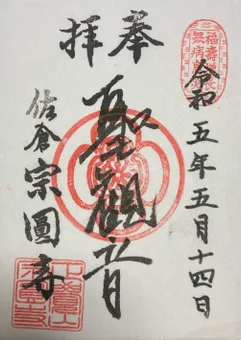 奉拝
令和五年五月十四日
聖観音
佐倉宗圓寺